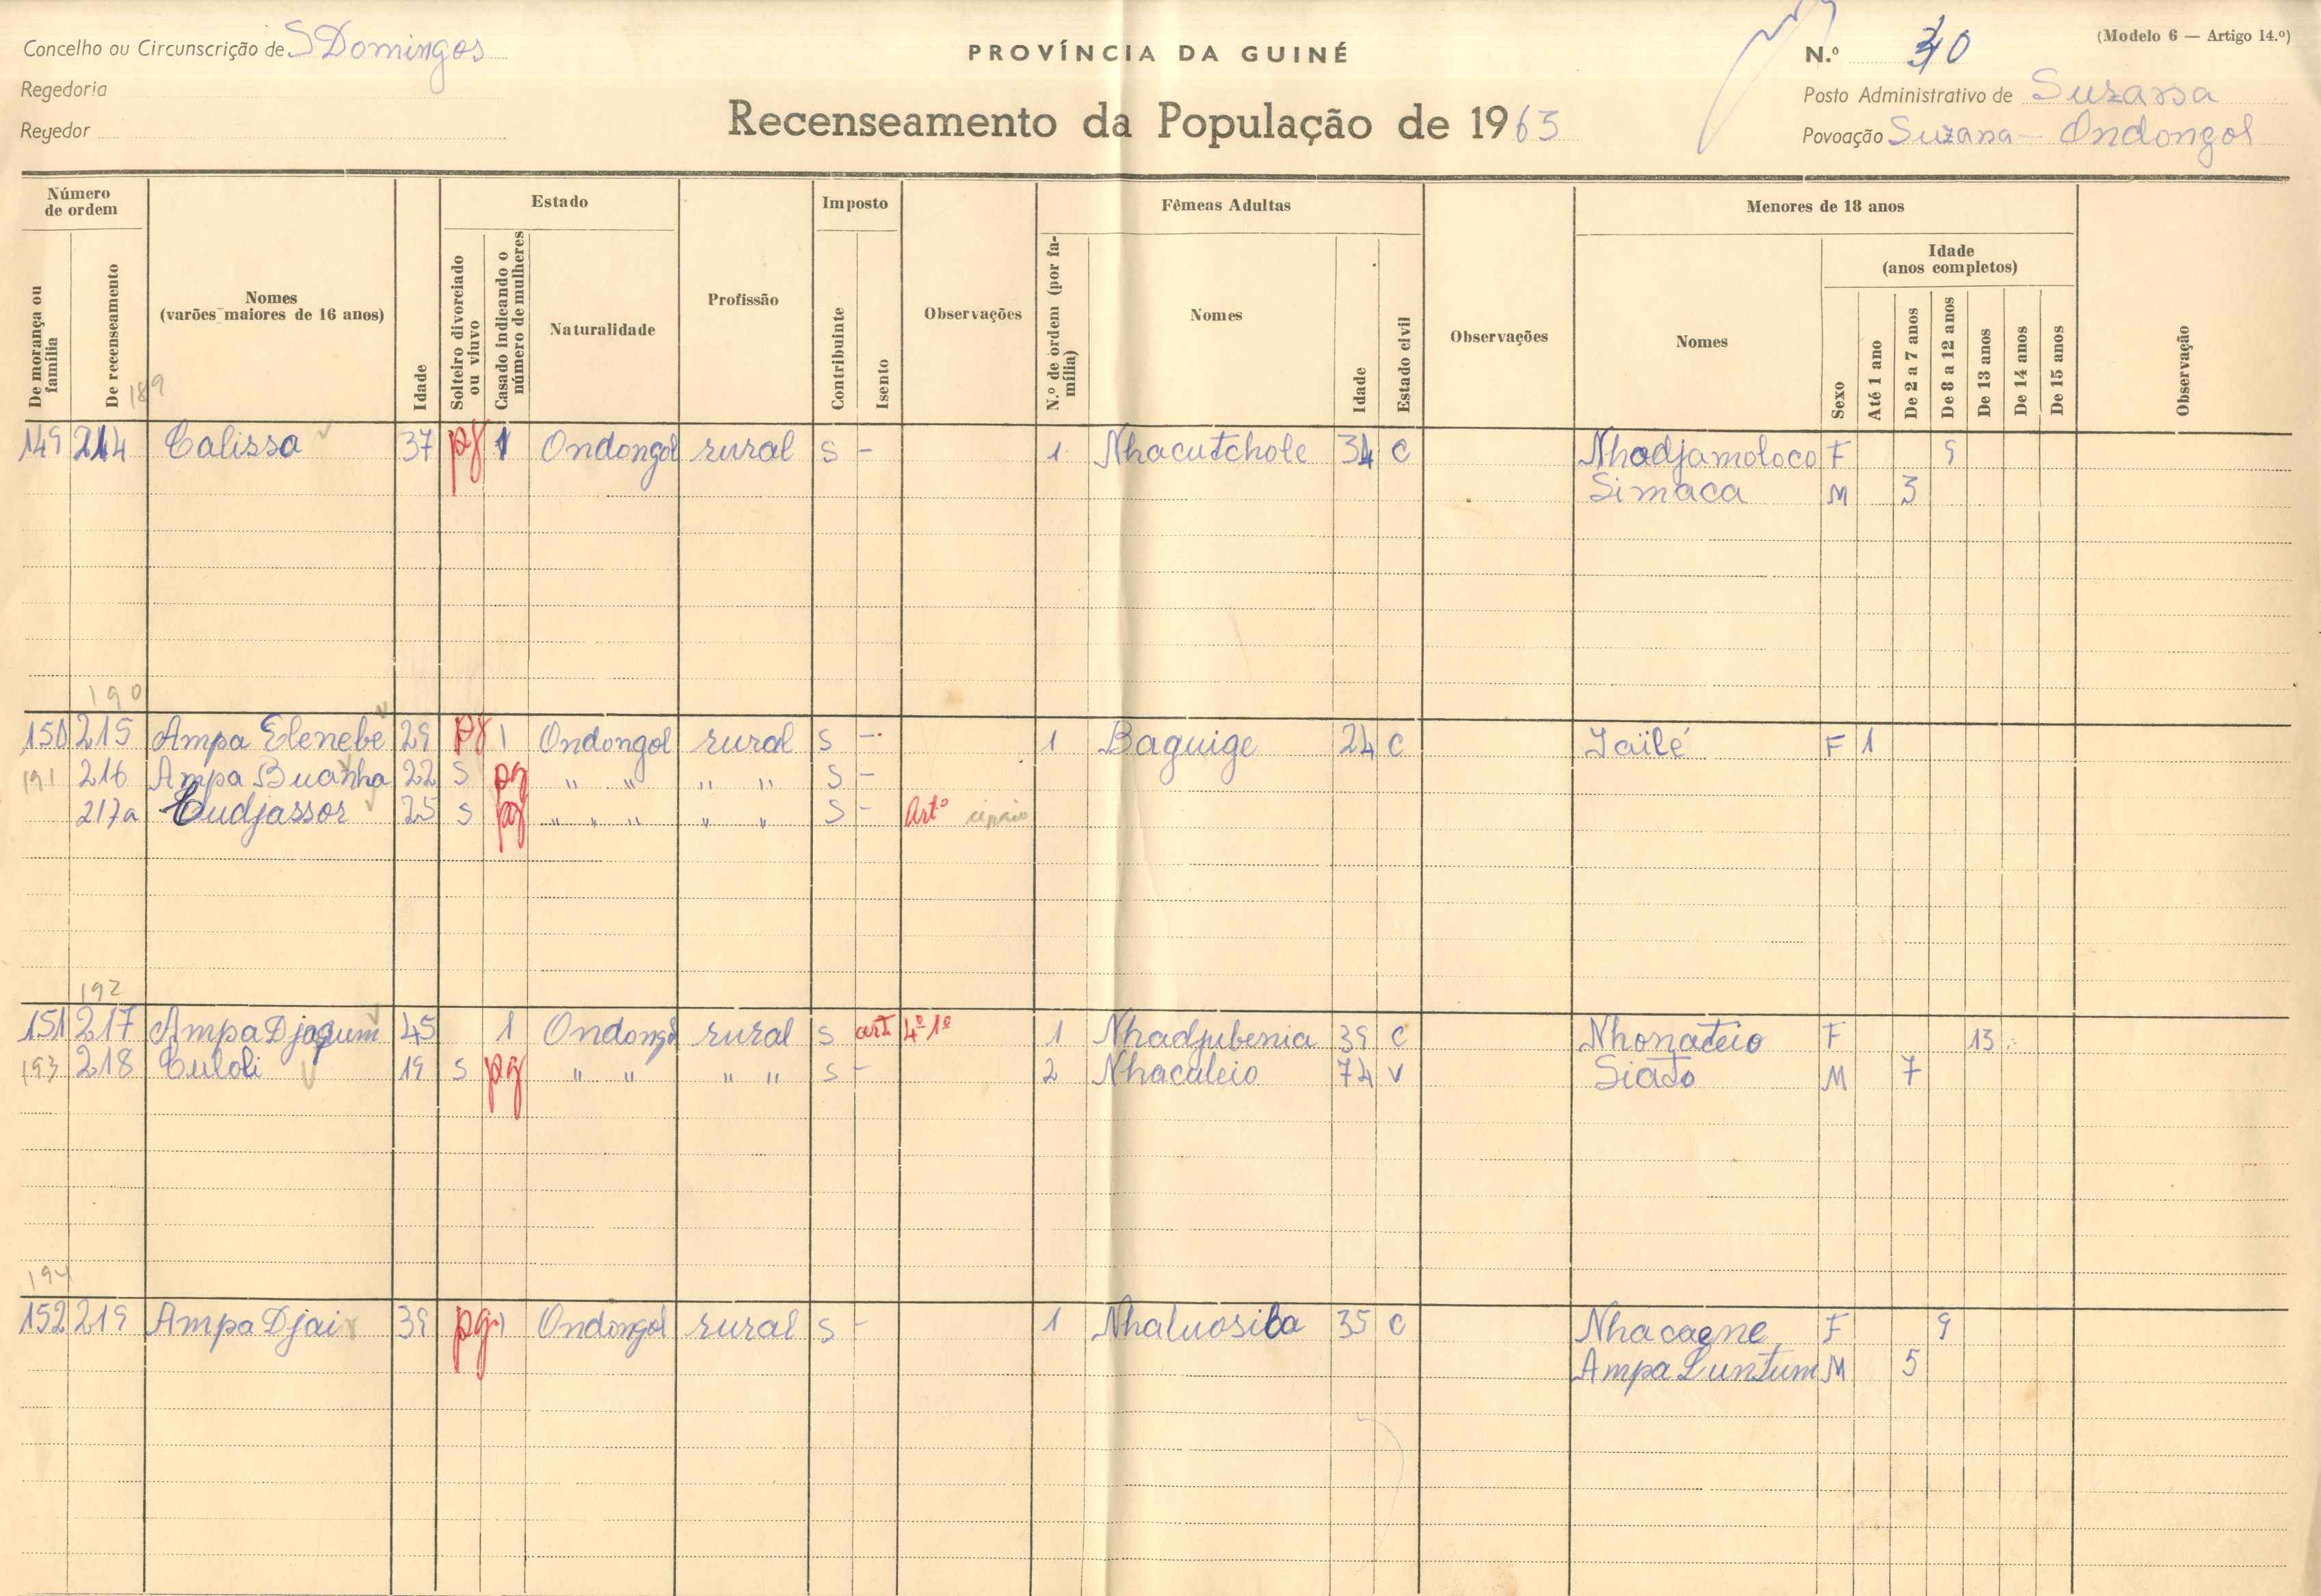 Concelho ou Circunscrição de S Domingos
PROVÍNCIA DA GUINÉ
N.º 40
(Modelo 6 — Artigo 14.º)
Regedoria
Posto Administrativo de Suzana
Regedor
Recenseamento da População de 1963
Povoação Suzana - Ondongol
Número de ordem
Estado
Imposto
Fêmeas Adultas
Menores de 18 anos
De morança ou família
De recenseamento
Nomes (varões maiores de 16 anos)
Idade
Solteiro divorciado ou viuvo
Casado indicando o número de mulheres
Naturalidade
Profissão
Contribuinte
Isento
Observações
N.º de ordem (por família)
Nomes
Idade
Estado civil
Observações
Nomes
Sexo
Idade (anos completos)
Até 1 ano
De 2 a 7 anos
De 8 a 12 anos
De 13 anos
De 14 anos
De 15 anos
Observação
189
149 214 Calissa 37 pg 1 Ondongol rural s - 1 Nhacutchole 34 C Nhadjamoloco F 9
Simaca M 3
190
150 215 Ampa Elenebe 29 pg 1 Ondongol rural s - 1 Baguige 24 C Jailé F 1
191 216 Ampa Buanha 22 s pg " " " " s -
217a Cudjassor 25 s pg " " " " " s - Artº cipaio
192
151 217 Ampa Djogum 45 1 Ondongol rural s art 4º 1º 1 Nhadjubenia 39 C Nhonateio F 13
193 218 Culoli 19 s pg " " " " s - 2 Nhacaleio 74 V Siato M 7
194
152 219 Ampa Djai 39 pg 1 Ondongol rural s - 1 Nhaluosiba 35 C Nhacaene F 9
Ampa Luntum M 5